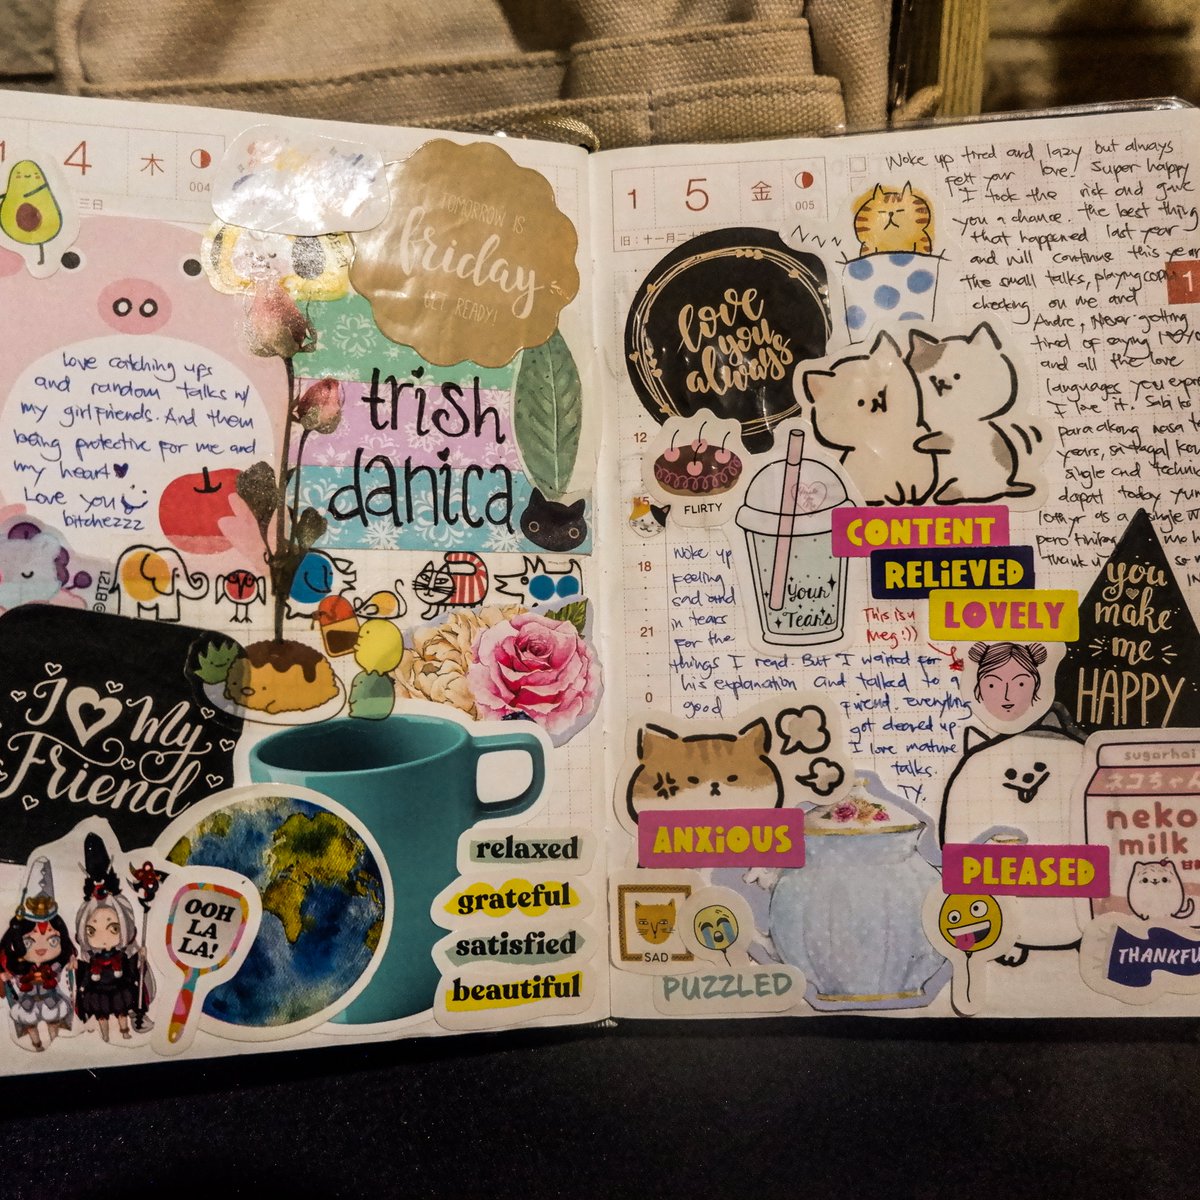 1 4 木
004
三日
TOMORROW IS
friday
GET READY!
love catching ups
and random talks w/
my girlfriends. And them
being protective for me and
my heart
Love you
bitchezzz
trish
danica
©BT21
I My
Friend
OOH
LA
LA!
relaxed
grateful
satisfied
beautiful
1 5 金
005
旧:十一月二十
love
you
always
Woke up tired and lazy but always
felt your love! Super happy
I took the risk and gave
you a chance. the best thing
that happened last year
and will continue this year
the small talks, playing
checking on me and
Andre, Never getting
tired of saying
and all the love
languages you
I love it.
para akong nasa
years, sa tagal
single and
dapat today
as a single
pero
Thank u
12
FLIRTY
18
21
0
Your
Tears
CONTENT
RELIEVED
LOVELY
This is
Meg!))
Woke up
feeling
sad and
in tears
for the
things I read. But I waited for
his explanation and talked to a
good friend. everything
got cleared up
I love mature
talks.
TY.
you
make
me
HAPPY
ANXIOUS
SAD
PUZZLED
PLEASED
sugarhai
ネコちゃん
neko
milk
THANKFU